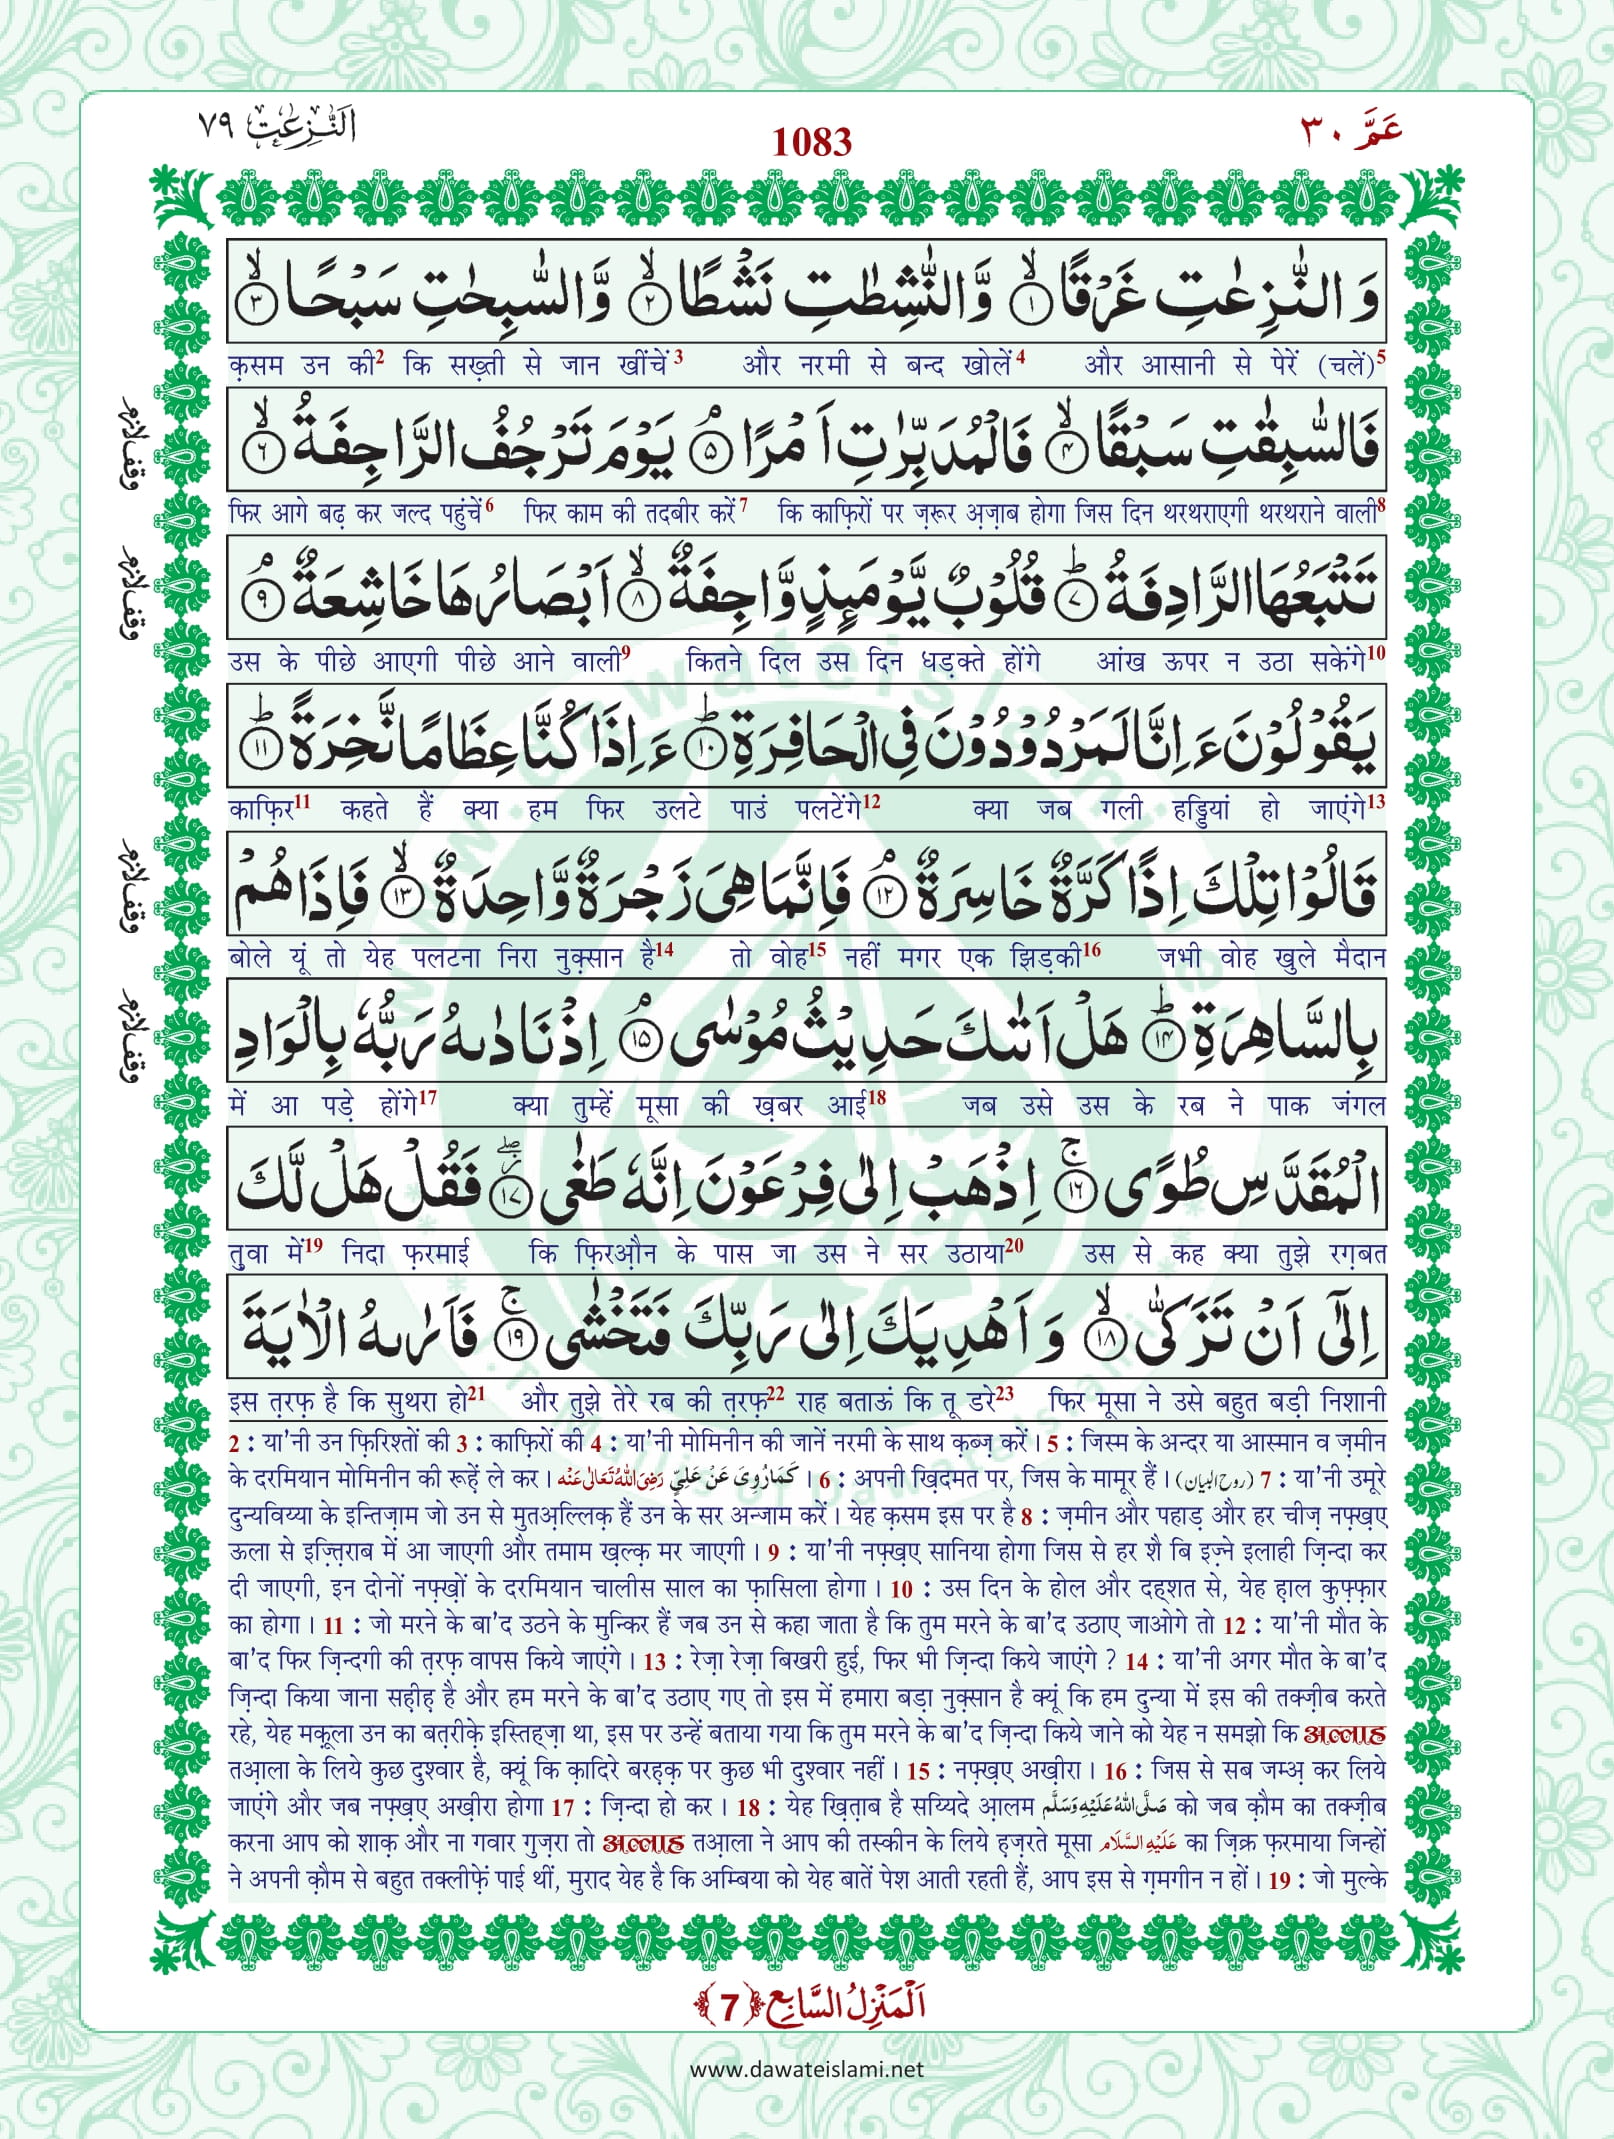 عَمَّ ٣٠
1083
اَلنّٰزِعٰت ٧٩
وَالنّٰزِعٰتِ غَرْقًاۙ﴿۱﴾ وَّالنّٰشِطٰتِ نَشْطًاۙ﴿۲﴾ وَّالسّٰبِحٰتِ سَبْحًاۙ﴿۳﴾
क़सम उन की2 कि सख़्ती से जान खींचें3 और नरमी से बन्द खोलें4 और आसानी से पेरें (चलें)5
فَالسّٰبِقٰتِ سَبْقًاۙ﴿۴﴾ فَالْمُدَبِّرٰتِ اَمْرًاۘ﴿۵﴾ یَوْمَ تَرْجُفُ الرَّاجِفَةُۙ﴿۶﴾
وقف لازم
फिर आगे बढ़ कर जल्द पहुंचें6 फिर काम की तदबीर करें7 कि काफ़िरों पर ज़रूर अ़ज़ाब होगा जिस दिन थरथराएगी थरथराने वाली8
تَتْبَعُهَا الرَّادِفَةُؕ﴿۷﴾ قُلُوْبٌ یَّوْمَىٕذٍ وَّاجِفَةٌۙ﴿۸﴾ اَبْصَارُهَا خَاشِعَةٌۘ﴿۹﴾
وقف لازم
उस के पीछे आएगी पीछे आने वाली9 कितने दिल उस दिन धड़क्ते होंगे आंख ऊपर न उठा सकेंगे10
یَقُوْلُوْنَ ءَاِنَّا لَمَرْدُوْدُوْنَ فِی الْحَافِرَةِؕ﴿۱۰﴾ ءَاِذَا كُنَّا عِظَامًا نَّخِرَةًؕ﴿۱۱﴾
काफ़िर11 कहते हैं क्या हम फिर उलटे पाउं पलटेंगे12 क्या जब गली हड्डियां हो जाएंगे13
قَالُوْا تِلْكَ اِذًا كَرَّةٌ خَاسِرَةٌۘ﴿۱۲﴾ فَاِنَّمَا هِیَ زَجْرَةٌ وَّاحِدَةٌۙ﴿۱۳﴾ فَاِذَا هُمْ
وقف لازم
बोले यूं तो येह पलटना निरा नुक़्सान है14 तो वोह15 नहीं मगर एक झिड़की16 जभी वोह खुले मैदान
بِالسَّاهِرَةِؕ﴿۱۴﴾ هَلْ اَتٰىكَ حَدِیْثُ مُوْسٰىۘ﴿۱۵﴾ اِذْ نَادٰىهُ رَبُّهٗ بِالْوَادِ
وقف لازم
में आ पड़े होंगे17 क्या तुम्हें मूसा की ख़बर आई18 जब उसे उस के रब ने पाक जंगल
الْمُقَدَّسِ طُوًىۚ﴿۱۶﴾ اِذْهَبْ اِلٰى فِرْعَوْنَ اِنَّهٗ طَغٰى٘ۖ﴿۱۷﴾ فَقُلْ هَلْ لَّكَ
तुवा में19 निदा फ़रमाई कि फ़िरऔ़न के पास जा उस ने सर उठाया20 उस से कह क्या तुझे रग़्बत
اِلٰۤى اَنْ تَزَكّٰىۙ﴿۱۸﴾ وَاَهْدِیَكَ اِلٰى رَبِّكَ فَتَخْشٰىۚ﴿۱۹﴾ فَاَرٰىهُ الْاٰیَةَ
इस त़रफ़ है कि सुथरा हो21 और तुझे तेरे रब की त़रफ़22 राह बताऊं कि तू डरे23 फिर मूसा ने उसे बहुत बड़ी निशानी
2 : या'नी उन फ़िरिश्तों की 3 : काफ़िरों की 4 : या'नी मोमिनीन की जानें नरमी के साथ क़ब्ज़ करें। 5 : जिस्म के अन्दर या आस्मान व ज़मीन
के दरमियान मोमिनीन की रूह़ें ले कर। كَمَارُوِیَ عَنْ عَلِیٍّ رَضِیَ اللّٰہُ تَعَالٰی عَنْه । 6 : अपनी ख़िदमत पर, जिस के मामूर हैं। (روح البیان) 7 : या'नी उमूरे
दुन्यविय्या के इन्तिज़ाम जो उन से मुतअ़ल्लिक़ हैं उन के सर अन्जाम करें। येह क़सम इस पर है 8 : ज़मीन और पहाड़ और हर चीज़ नफ़्ख़ए
ऊला से इज़्त़िराब में आ जाएगी और तमाम ख़ल्क़ मर जाएगी। 9 : या'नी नफ़्ख़ए सानिया होगा जिस से हर शै बि इज़्ने इलाही ज़िन्दा कर
दी जाएगी, इन दोनों नफ़्ख़ों के दरमियान चालीस साल का फ़ासिला होगा। 10 : उस दिन के होल और दह्शत से, येह ह़ाल कुफ़्फ़ार
का होगा। 11 : जो मरने के बा'द उठने के मुन्किर हैं जब उन से कहा जाता है कि तुम मरने के बा'द उठाए जाओगे तो 12 : या'नी मौत के
बा'द फिर ज़िन्दगी की त़रफ़ वापस किये जाएंगे। 13 : रेज़ा रेज़ा बिखरी हुई, फिर भी ज़िन्दा किये जाएंगे ? 14 : या'नी अगर मौत के बा'द
ज़िन्दा किया जाना सह़ीह़ है और हम मरने के बा'द उठाए गए तो इस में हमारा बड़ा नुक़्सान है क्यूं कि हम दुन्या में इस की तक्ज़ीब करते
रहे, येह मक़ूला उन का बत़रीक़े इस्तिह्ज़ा था, इस पर उन्हें बताया गया कि तुम मरने के बा'द ज़िन्दा किये जाने को येह न समझो कि अल्लाह
तआ़ला के लिये कुछ दुश्वार है, क्यूं कि क़ादिरे बरह़क़ पर कुछ भी दुश्वार नहीं। 15 : नफ़्ख़ए अख़ीरा। 16 : जिस से सब जम्अ़ कर लिये
जाएंगे और जब नफ़्ख़ए अख़ीरा होगा 17 : ज़िन्दा हो कर। 18 : येह ख़ित़ाब है सय्यिदे आ़लम صَلَّی اللّٰہُ عَلَیْہِ وَسَلَّم को जब क़ौम का तक्ज़ीब
करना आप को शाक़ और ना गवार गुज़रा तो अल्लाह तआ़ला ने आप की तस्कीन के लिये ह़ज़रते मूसा عَلَیْہِ السَّلَام का ज़िक्र फ़रमाया जिन्हों
ने अपनी क़ौम से बहुत तक्लीफ़ें पाई थीं, मुराद येह है कि अम्बिया को येह बातें पेश आती रहती हैं, आप इस से ग़मगीन न हों। 19 : जो मुल्के
اَلْمَنْزِلُ السَّابِع ﴿7﴾
www.dawateislami.net